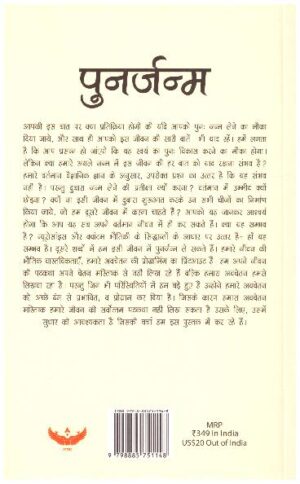 पुनर्जन्म
आपकी इस बात पर क्या प्रतिक्रिया होगी की यदि आपको पुनः जन्म लेने का मौका
दिया जाये, और साथ ही आपको इस जीवन की सारी बातें भी याद रहें। हमें लगता
है कि आप प्रसन्न हो जाएंगे कि यह स्वयं का पुनः विकास करने का मौका होगा।
लेकिन क्या हमारे अगले जन्म में इस जीवन की हर बात को याद रखना संभव है?
हमारे वर्तमान वैज्ञानिक ज्ञान के अनुसार, उपरोक्त प्रश्न का उत्तर है कि यह संभव
नहीं है। परन्तु दूसरा जन्म लेने की प्रतीक्षा क्यों करना? वर्तमान में उम्मीद क्यों
छोड़ना? क्यों ना इसी जीवन में दुबारा शुरूआत करके उन सभी चीजों का निर्माण
किया जाये, जो हम दूसरे जीवन में करना चाहते हैं? आपको यह जानकर आश्चर्य
होगा कि आप यह सब अपने वर्तमान जीवन में ही कर सकते हैं। क्या यह सम्भव
है? न्यूरोसाइंस और क्वांटम भौतिकी के सिद्धान्तों के आधार पर उत्तर है- हाँ यह
सम्भव है। दूसरे शब्दों में हम इसी जीवन में पुनर्जन्म ले सकते हैं। हमारे जीवन की
भौतिक वास्तविकताएँ, हमारे अवचेतन की प्रोग्रामिंग का प्रिंटआउट हैं। हम अपने जीवन
की पटकथा अपने चेतन मस्तिष्क से नहीं लिख रहे हैं बल्कि हमारा अवचेतन हमसे
लिखवा रहा है। परन्तु जिन भी परिस्थितियों में हम बड़े हुए हैं उन्होंने हमारे अवचेतन
को अपने ढंग से प्रभावित, व प्रोग्राम कर दिया है। जिसके कारण हमारा अवचेतन
मस्तिष्क हमारे जीवन की सर्वोत्तम पटकथा नहीं लिख सकता है उसके लिए, उसमें
सुधार की आवश्यकता है जिसकी चर्चा हम इस पुस्तक में कर रहे हैं।
MRP
₹349 in India
US$20 Out of India
9 798885 751148